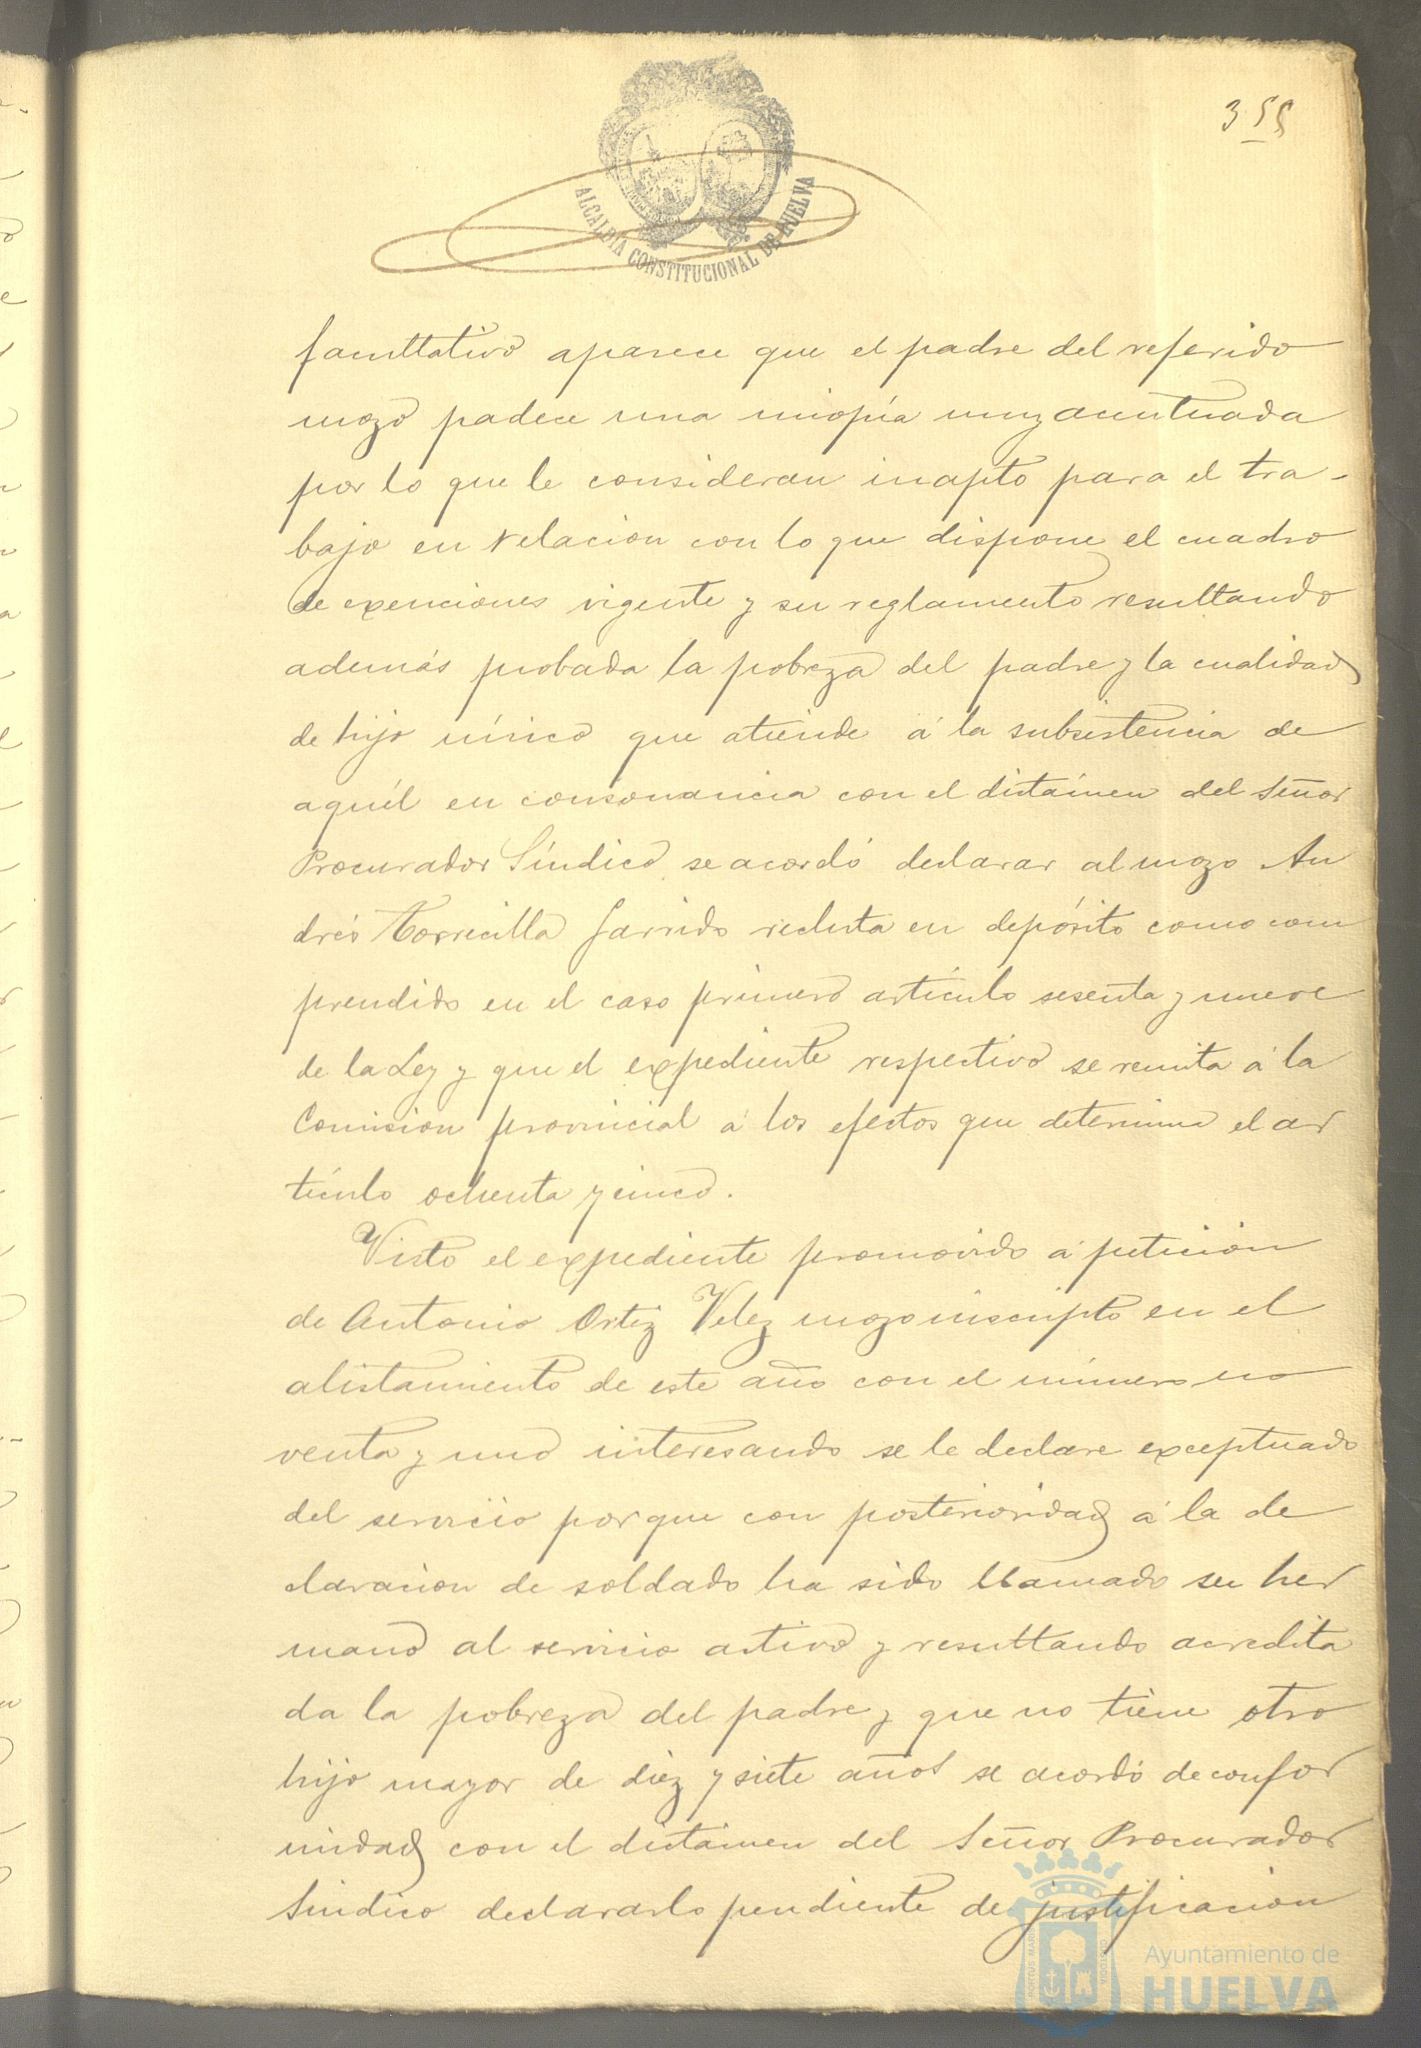 355
ALCALDÍA CONSTITUCIONAL DE HUELVA
facultativo aparece que el padre del referido
mozo padece una miopía muy acentuada
por lo que le consideran inapto para el tra-
bajo en relacion con lo que dispone el cuadro
de exenciones vigente y su reglamento resultando
además probada la pobreza del padre y la cualidad
de hijo único que atiende á la subsistencia de
aquél en consonancia con el dictámen del Señor
Procurador Síndico se acordó declarar al mozo An
drés Torrecilla Garrido recluta en depósito como com
prendido en el caso primero artículo sesenta y nueve
de la Ley y que el expediente respectivo se remita á la
Comision provincial á los efectos que determina el ar
tículo ochenta y cinco.
Visto el expediente promovido á peticion
de Antonio Ortiz Velez mozo inscripto en el
alistamiento de este año con el número no
venta y uno interesando se le declare exceptuado
del servicio porque con posterioridad á la de
claracion de soldado ha sido llamado su her
mano al servicio activo y resultando acredita
da la pobreza del padre y que no tiene otro
hijo mayor de diez y siete años se acordó de confor
midad con el dictámen del Señor Procurador
Sindico declararlo pendiente de justificacion
Ayuntamiento de
HUELVA